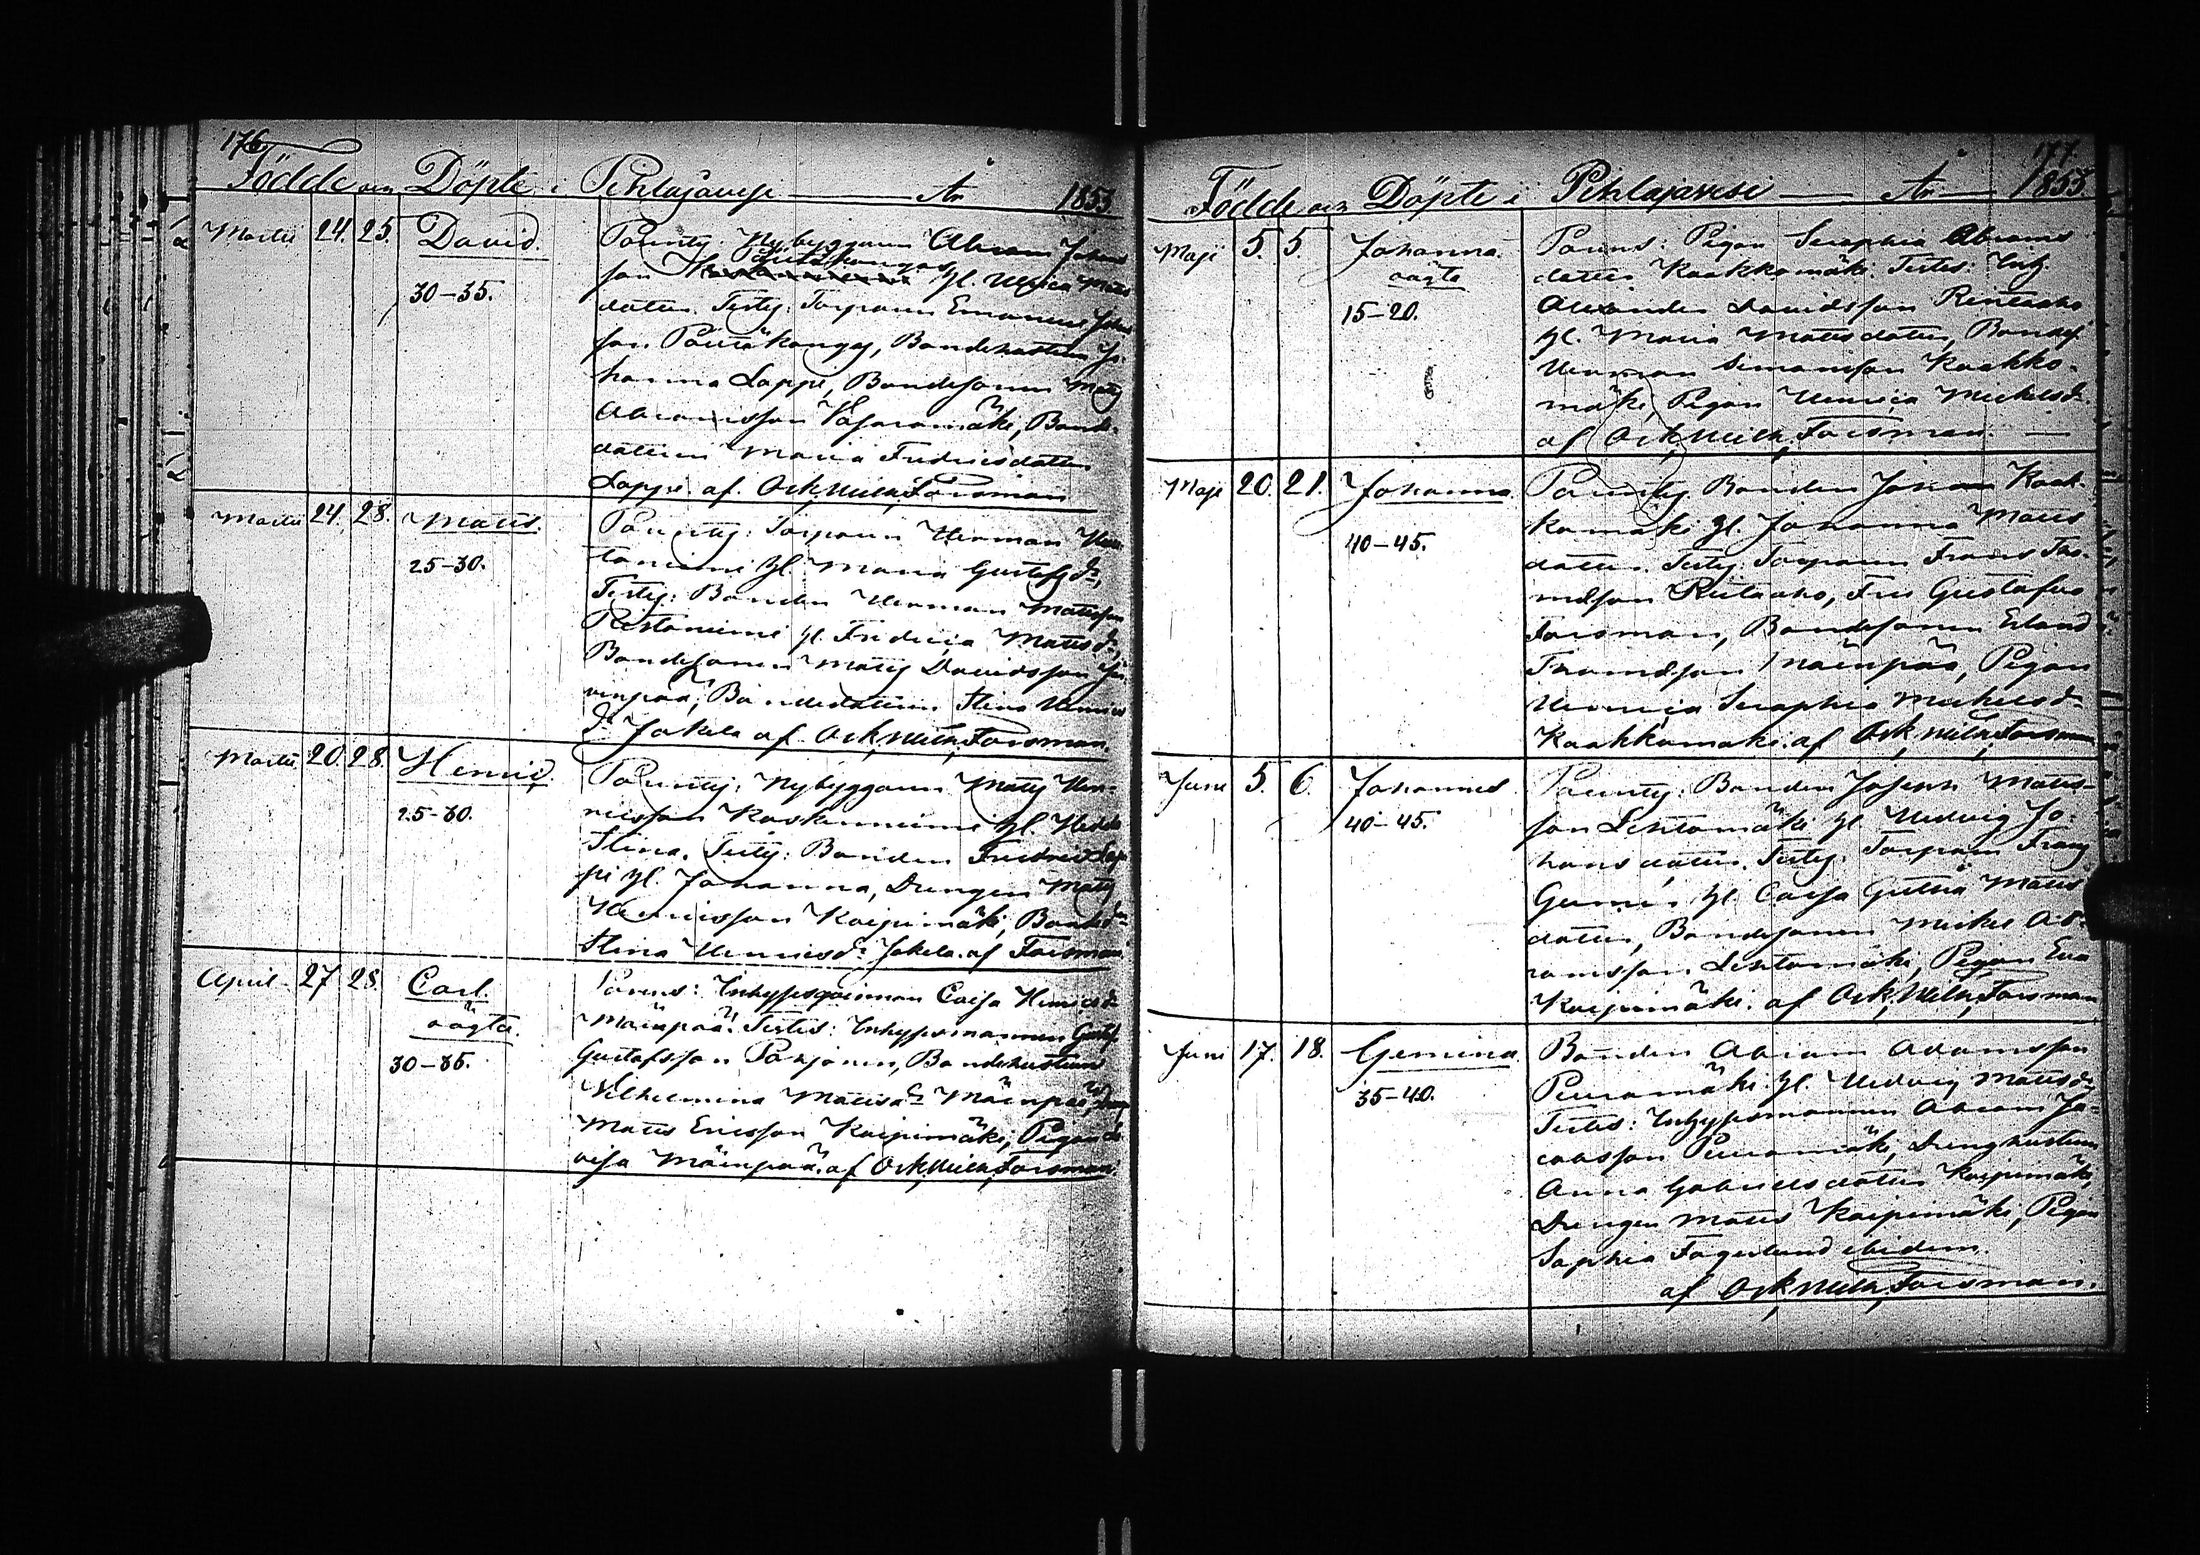 176
Födde och Döpte i Pihlajavesi — År 1853.
Martii 24. 25. David. Parentes: Nybyggaren Abram Johans
son Pöntäkangas gl. Ulrica Matts
30-35. dotter. Testes: Torparen Emanuel Johans
son Pöntäkangas, Bondehustrun Jo-
hanna Lappi, Bondesonen Matts
Abramsson Vasaramäki, Bonde-
dottern Maria Fredricsdotter
Lappi. af. Ork, Wilh, Forsman
Martii 24. 28. Matts. Parentes: Torparen Herman
taniemi gl. Maria Gustafsdr,
25-30. Testes: Bonden Herman Mattsson
Ristaniemi gl. Fredrica Mattsdr,
Bondesonen Matts Davidsson Jär
venpää, Bondedottern Stina Henrics
dr Jokela af Ork, Wilh, Forsman.
Martii 20. 28. Henric. Parentes: Nybyggaren Matts Hen-
ricsson Koskenniemi gl. Hedda
25-30. Stina. Testes: Bonden Fredric Lap
pi gl. Johanna, Drengen Matts
Henricsson Kaipimäki, Bonded:
Stina Henricsdr Jokela. af Forsman
April 27. 28. Carl. Parens: Inhyseqvinnan Caisa Henricsdr
oägta. Mäenpää. Testes: Inhysesmannen Gustaf
30-35. Gustafsson Pohjonen, Bondehustrun
Vilhelmina Mattsdr Mäenpää, Dren
Matts Ericsson Kaipimäki, Pigan Lo
visa Mäenpää. af Ork, Wilh, Forsman.
177
Födde och Döpte i Pihlajavesi — År — 1853.
Maji 5. 5. Johanna. Parens: Pigan Seraphia Abrams
oägta dotter Kaakkomäki. Testes: Inh.
15-20. Alexander Davidsson Rintaaho
gl. Maria Mattsdotter, Bondes.
Herman Simonsson Kaakko-
mäki, Pigan Henrica Michelsdr
af Ork, Wilh, Forsman. —
Maji 20. 21. Johanna. Parentes: Bonden Johan Kaak-
komäki gl. Johanna Matts
40-45. dotter. Testes: Torparen Frans Tho-
masson Rintaaho, Fru Gustafva
Forsman, Bondesonen Erland
Thomasson Mäenpää, Pigan
Henrica Seraphia Michelsdr
Kaakkomäki. af Ork, Wilh, Forsman
Juni 5. 6. Johannes. Parentes: Bonden Joseph Matts-
son Lehtomäki gl Hedvig Jo-
40-45. hansdotter. Testes: Torparen Frans
Gumér gl Caisa Greta Matts
dotter, Bondesonen Michel Ab-
ramsson Lehtomäki, Pigan Eva
Kaipimäki. af Ork, Wilh, Forsman
Juni 17. 18. Gemina. Bonden Abram Adamsson
Peuramäki gl. Hedvig Mattsdr
35-40. Testes: Inhysesmannen Abram Ja-
cobsson Peuramäki, Drenghustrun
Anna Gabrielsdotter Kaipimäki,
Drengen Matts Kaipimäki, Pigan
Sophia Fagerlund ibidem.
af Ork, Wilh, Forsman.